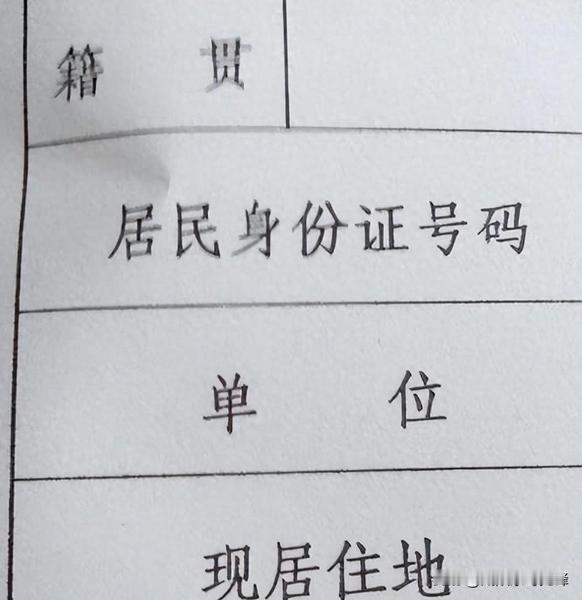 籍 贯
居民身份证号码
单 位
现居住地